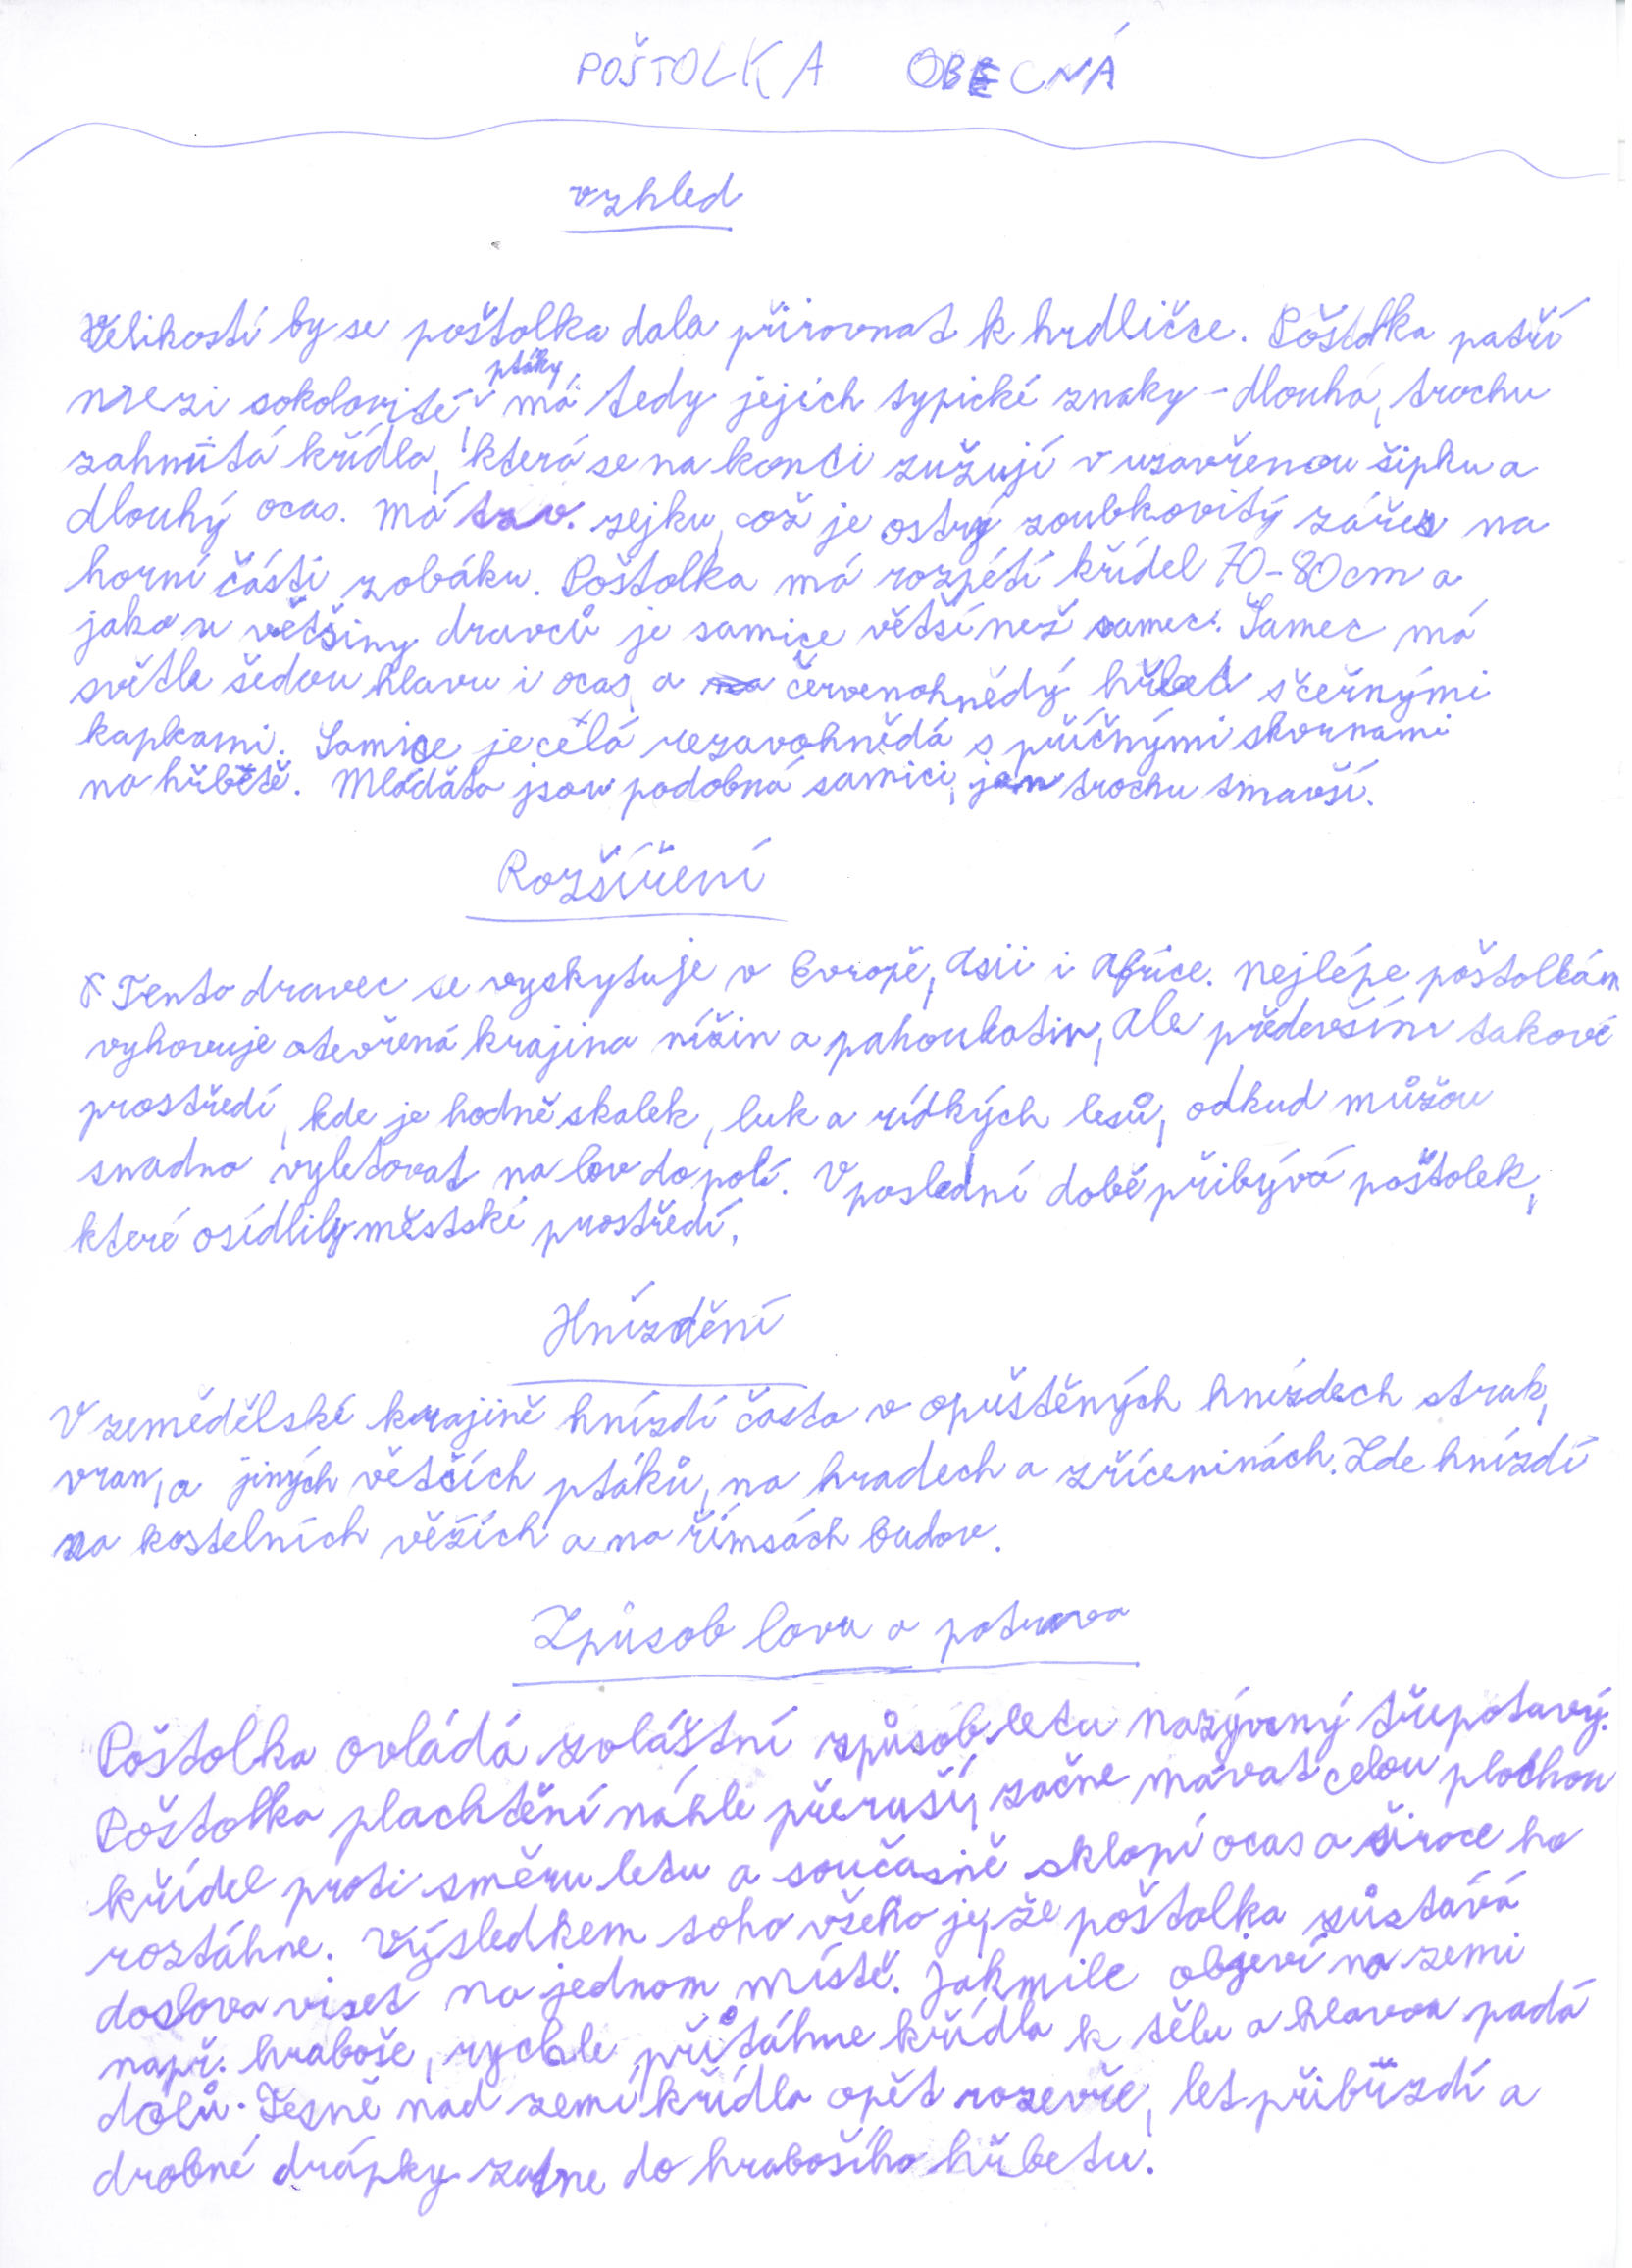 POŠTOLKA OBECNÁ
vzhled
Velikostí by se poštolka dala přirovnat k hrdličce. Poštolka patří
mezi sokolovité ptáky, má tedy jejich typické znaky - dlouhá, trochu
zahnutá křídla, která se na konci zužují v uzavřenou šipku a
dlouhý ocas. Má tzv. zejku, což je ostrý zoubkovitý zářez na
horní části zobáku. Poštolka má rozpětí křídel 70-80cm a
jako u většiny dravců je samice větší než samec. Samec má
světle šedou hlavu i ocas, a červenohnědý hřbet s černými
kapkami. Samice je celá rezavohnědá s příčnými skvrnami
na hřbětě. Mláďáta jsou podobná samici, jen trochu tmavší.
Rozšíření
Tento dravec se vyskytuje v Evropě, Asii i Africe. Nejlépe poštolkám
vyhovuje otevřená krajina nížin a pahorkatin, ale především takové
prostředí, kde je hodně skalek, luk a řídkých lesů, odkud můžou
snadno vyletovat na lov do polí. V poslední době přibývá poštolek,
které osídlily městské prostředí.
Hnízdění
V zemědělské krajině hnízdí často v opuštěných hnízdech strak,
vran, a jiných větších ptáků, na hradech a zříceninách. Zde hnízdí
na kostelních věžích a na římsách budov.
Způsob lovu a potrava
Poštolka ovládá zvláštní způsob letu nazývaný třepotavý.
Poštolka plachtění náhle přeruší, začne mávat celou plochou
křídel proti směru letu a současně sklopí ocas a široce ho
roztáhne. Výsledkem toho všeho je, že poštolka zůstává
doslova viset na jednom místě. Jakmile objeví na zemi
např. hraboše, rychle přitáhne křídla k tělu a hlavou padá
dolů. Těsně nad zemí křídla opět rozevře, let přibřzdí a
drobné drápky zatne do hrabošího hřbetu.